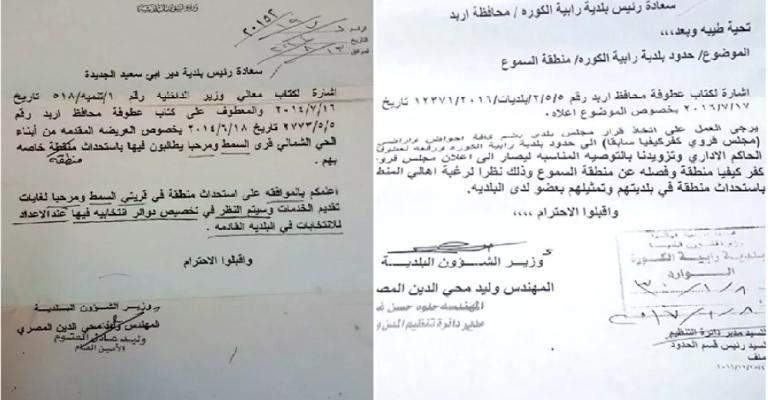 وزارة الشؤون البلدية
الرقم
التاريخ
الموافق
سعادة رئيس بلدية دير ابي سعيد الجديدة
اشارة لكتاب معالي وزير الداخليه رقم ١/تنميه/٥١٨ تاريخ
٢٠١٤/٧/١٦ والمعطوف على كتاب عطوفة محافظ اربد رقم
٢٧٧٣/٥/٥ تاريخ ٢٠١٤/٦/١٨ بخصوص العريضه المقدمه من أبناء
الحي الشمالي قرى السمط ومرحبا يطالبون فيها باستحداث منطقة خاصه
بهم .
اعلمكم بالموافقه على استحداث منطقة في قريتي السمط ومرحبا لغايات
تقديم الخدمات وسيتم النظر في تخصيص دوائر انتخابيه فيها عند الاعداد
للانتخابات في البلديه القادمه .
واقبلوا الاحترام
وزير الشؤون البلدية
المهندس وليد محي الدين المصري
وليد عادل العتوم
الأمين العام
سعادة رئيس بلدية رابية الكوره / محافظة اربد
تحية طيبه وبعد،،،
الموضوع/ حدود بلدية رابية الكوره/ منطقة السموع
اشارة لكتاب عطوفة محافظ اربد رقم ٢/٥/٥/بلديات/١٢٣٧١/٢٠١٦ تاريخ
٢٠١٦/٧/١٧ بخصوص الموضوع اعلاه.
يرجى العمل على اتخاذ قرار مجلس بلدي بضم كافة احواض واراضي
(مجلس قروي كفركيفيا سابقا) الى حدود بلدية رابية الكوره ورفعه لعطوفة
الحاكم الاداري وتزويدنا بالتوصيه المناسبه ليصار الى اعلان مجلس قروي
كفر كيفيا منطقة وفصله عن منطقة السموع وذلك نظرا لرغبة اهالي المنط
باستحداث منطقة في بلديتهم وتمثيلهم بعضو لدى البلديه.
واقبلوا الاحترام ،،،،
وزير الشؤون البلدية
المهندس وليد محي الدين المص
المهندسه حلوه حسن
مدير دائرة تنظيم المدن و
بلدية رابية الكورة
الوارد
للسيد مدير دائرة التنظيم
لسيد رئيس قسم الحدود
ملف